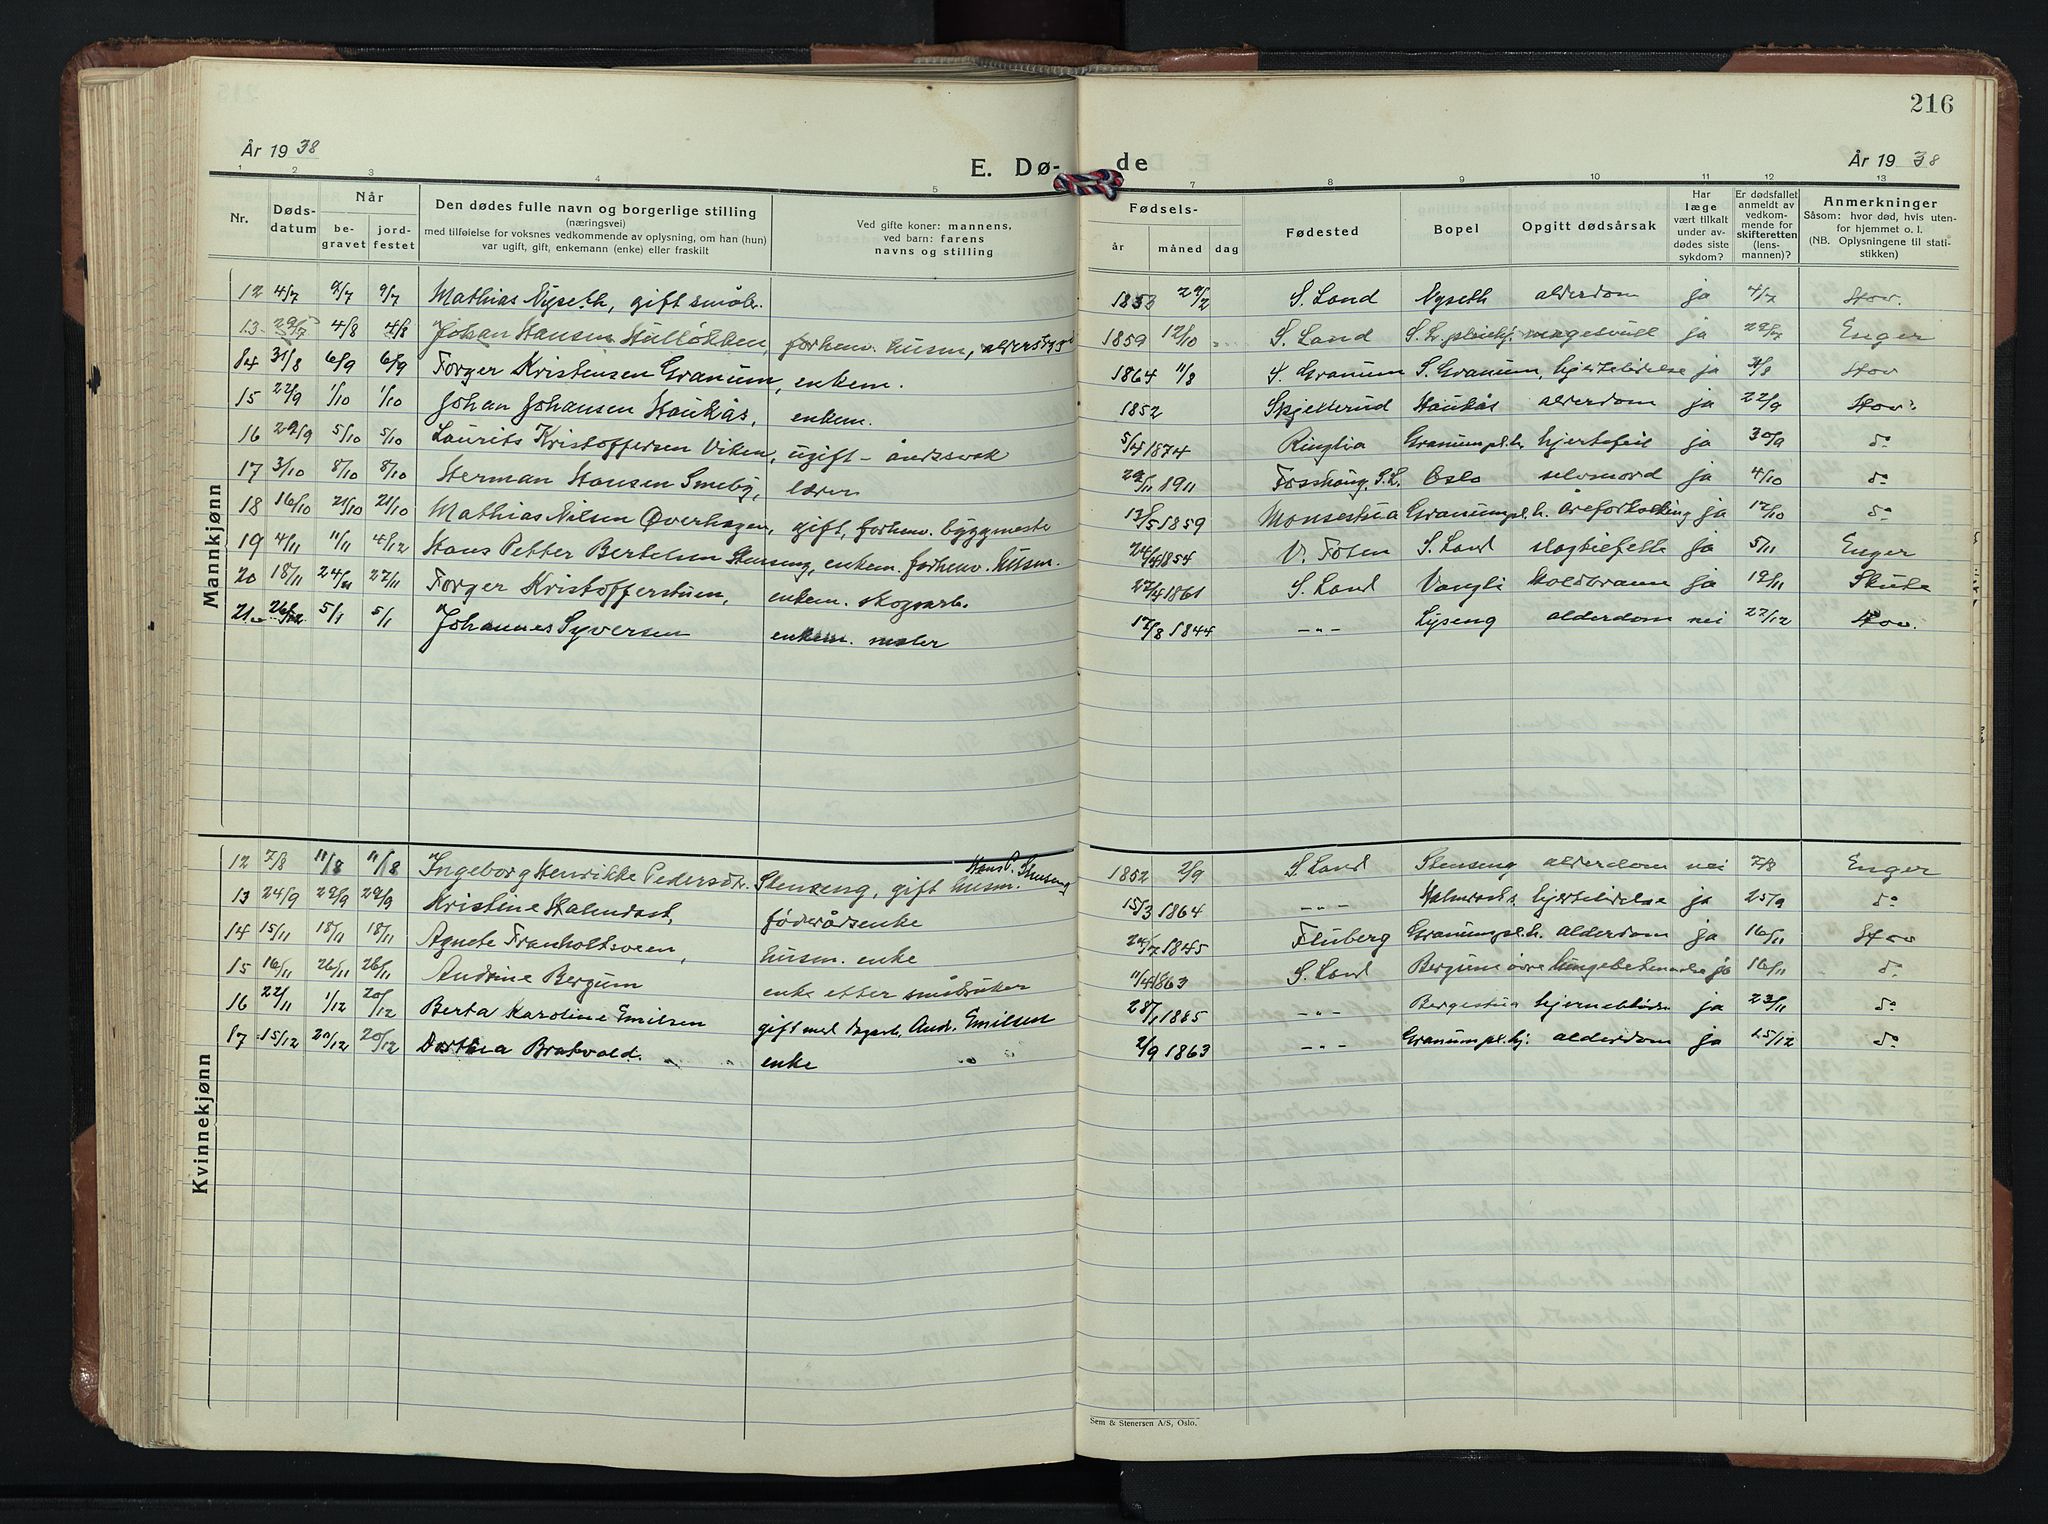 216
År 1938
E. Dø- de
År 1938
1 2 3 4 5 7 8 9 10 11 12 13
Nr. Døds-datum Når be-gravet jord-festet
Den dødes fulle navn og borgerlige stilling
(næringsvei)
med tilføielse for voksnes vedkommende av oplysning, om han (hun)
var ugift, gift, enkemann (enke) eller fraskilt
Ved gifte koner: mannens,
ved barn: farens
navns og stilling
Fødsels- år måned dag
Fødested
Bopel
Opgitt dødsårsak
Har læge vært tilkalt under av-dødes siste sykdom?
Er dødsfallet anmeldt av vedkom-mende for skifteretten (lens-mannen)?
Anmerkninger
Såsom: hvor død, hvis uten-for hjemmet o. l.
(NB. Oplysningene til stati-stikken)
Mannkjønn
12 4/7 9/7 9/7 Mathias Nyseth, gift småbr. 1853 S. Land Nyseth alderdom ja 4/7 Hov.
13 29/7 4/8 4/8 Johan Hansen forhem. husm, 1859 12/10 S. Land ja 29/7 Enger
14 31/8 6/9 6/9 Torger Kristensen Granum, enkem. 1864 11/8 S. Granum S. Granum, hjertelidelse ja 31/8 Hov
15 22/9 1/10 1/10 Johan Johansen Haukås, enkem. 1852 Skjellerud Haukås alderdom ja 22/9 Hov
16 29/9 5/10 5/10 Laurits Kristoffersen Viken, ugift - åndssvak 5/4 1874 Ringlia Granum pl.h. hjertefeil ja 30/9 do
17 3/10 8/10 8/10 Herman Hansen Smeby, lærer 29/11 1911 Fosshaug, S.L. Oslo selvmord ja 4/10 do
18 16/10 21/10 21/10 Mathias Nilsen Øverhagen, gift, forhenv. byggmeste 13/5 1859 Monsestua Granum pl.h. åreforkalking ja 17/10 do
19 4/11 11/11 4/12 Hans Petter Bertelsen Stenseng, enkem. forhenv. husm. 24/4 1854 V. Toten S. Land slagtilfelle ja 5/11 Enger
20 18/11 24/11 27/11 Torger Kristofferstuen, enkem. skogsarb. 27/4 1861 S. Land Vangli koldbrann ja 19/11 Skute
21 26/12 5/1 5/1 Johannes Syversen enkem. maler 17/8 1844 -"- Lyseng alderdom nei 27/12 Hov.
Kvinnekjønn
12 7/8 11/8 11/8 Ingeborg Henrikke Pedersdtr. Stenseng, gift husm. Hans P. Stenseng 1852 2/9 S. Land Stenseng alderdom nei 7/8 Enger
13 24/9 29/9 29/9 Kristine Halmrast, føderådsenke 15/3 1864 -"- Halmrast s. hjertelidelse ja 25/9 do
14 15/11 18/11 18/11 Agnete Tranholtsveen, husm. enke 24/7 1845 Fluberg Granum pl.h. alderdom ja 16/11 Hov
15 16/11 26/11 26/11 Andrine Bergum enke etter småbruker 11/4 1863 S. Land Bergum øvre lungebetennelse ja 16/11 do
16 22/11 1/12 20/12 Berta Karoline Emilsen gift med dagarb. And. Emilsen 28/1 1885 -"- Bergestua hjerneblødn. ja 23/11 do
17 15/12 20/12 20/12 Dorthea Bratvold. enke 2/9 1863 -"- Granum pl.hj. alderdom ja 15/12 do
Sem & Stenersen A/S, Oslo.